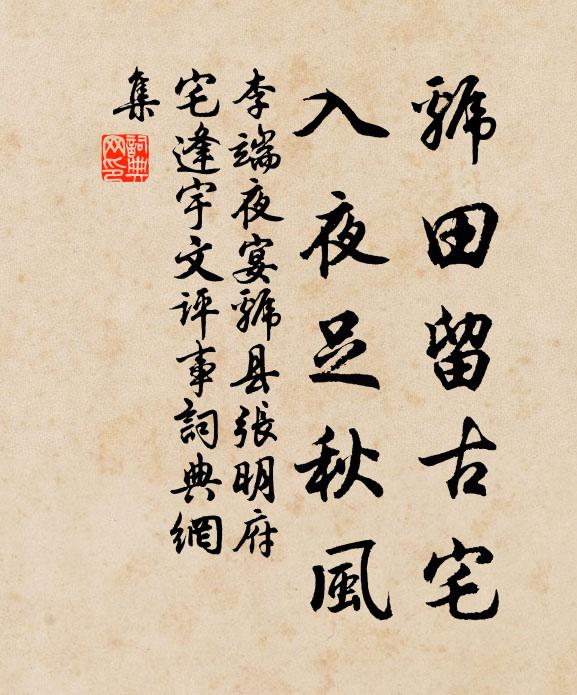 虢田留古宅
入夜足秋風
李端夜宴虢县張明府
宅逢宇文評事詞典網
集
詞典
网印